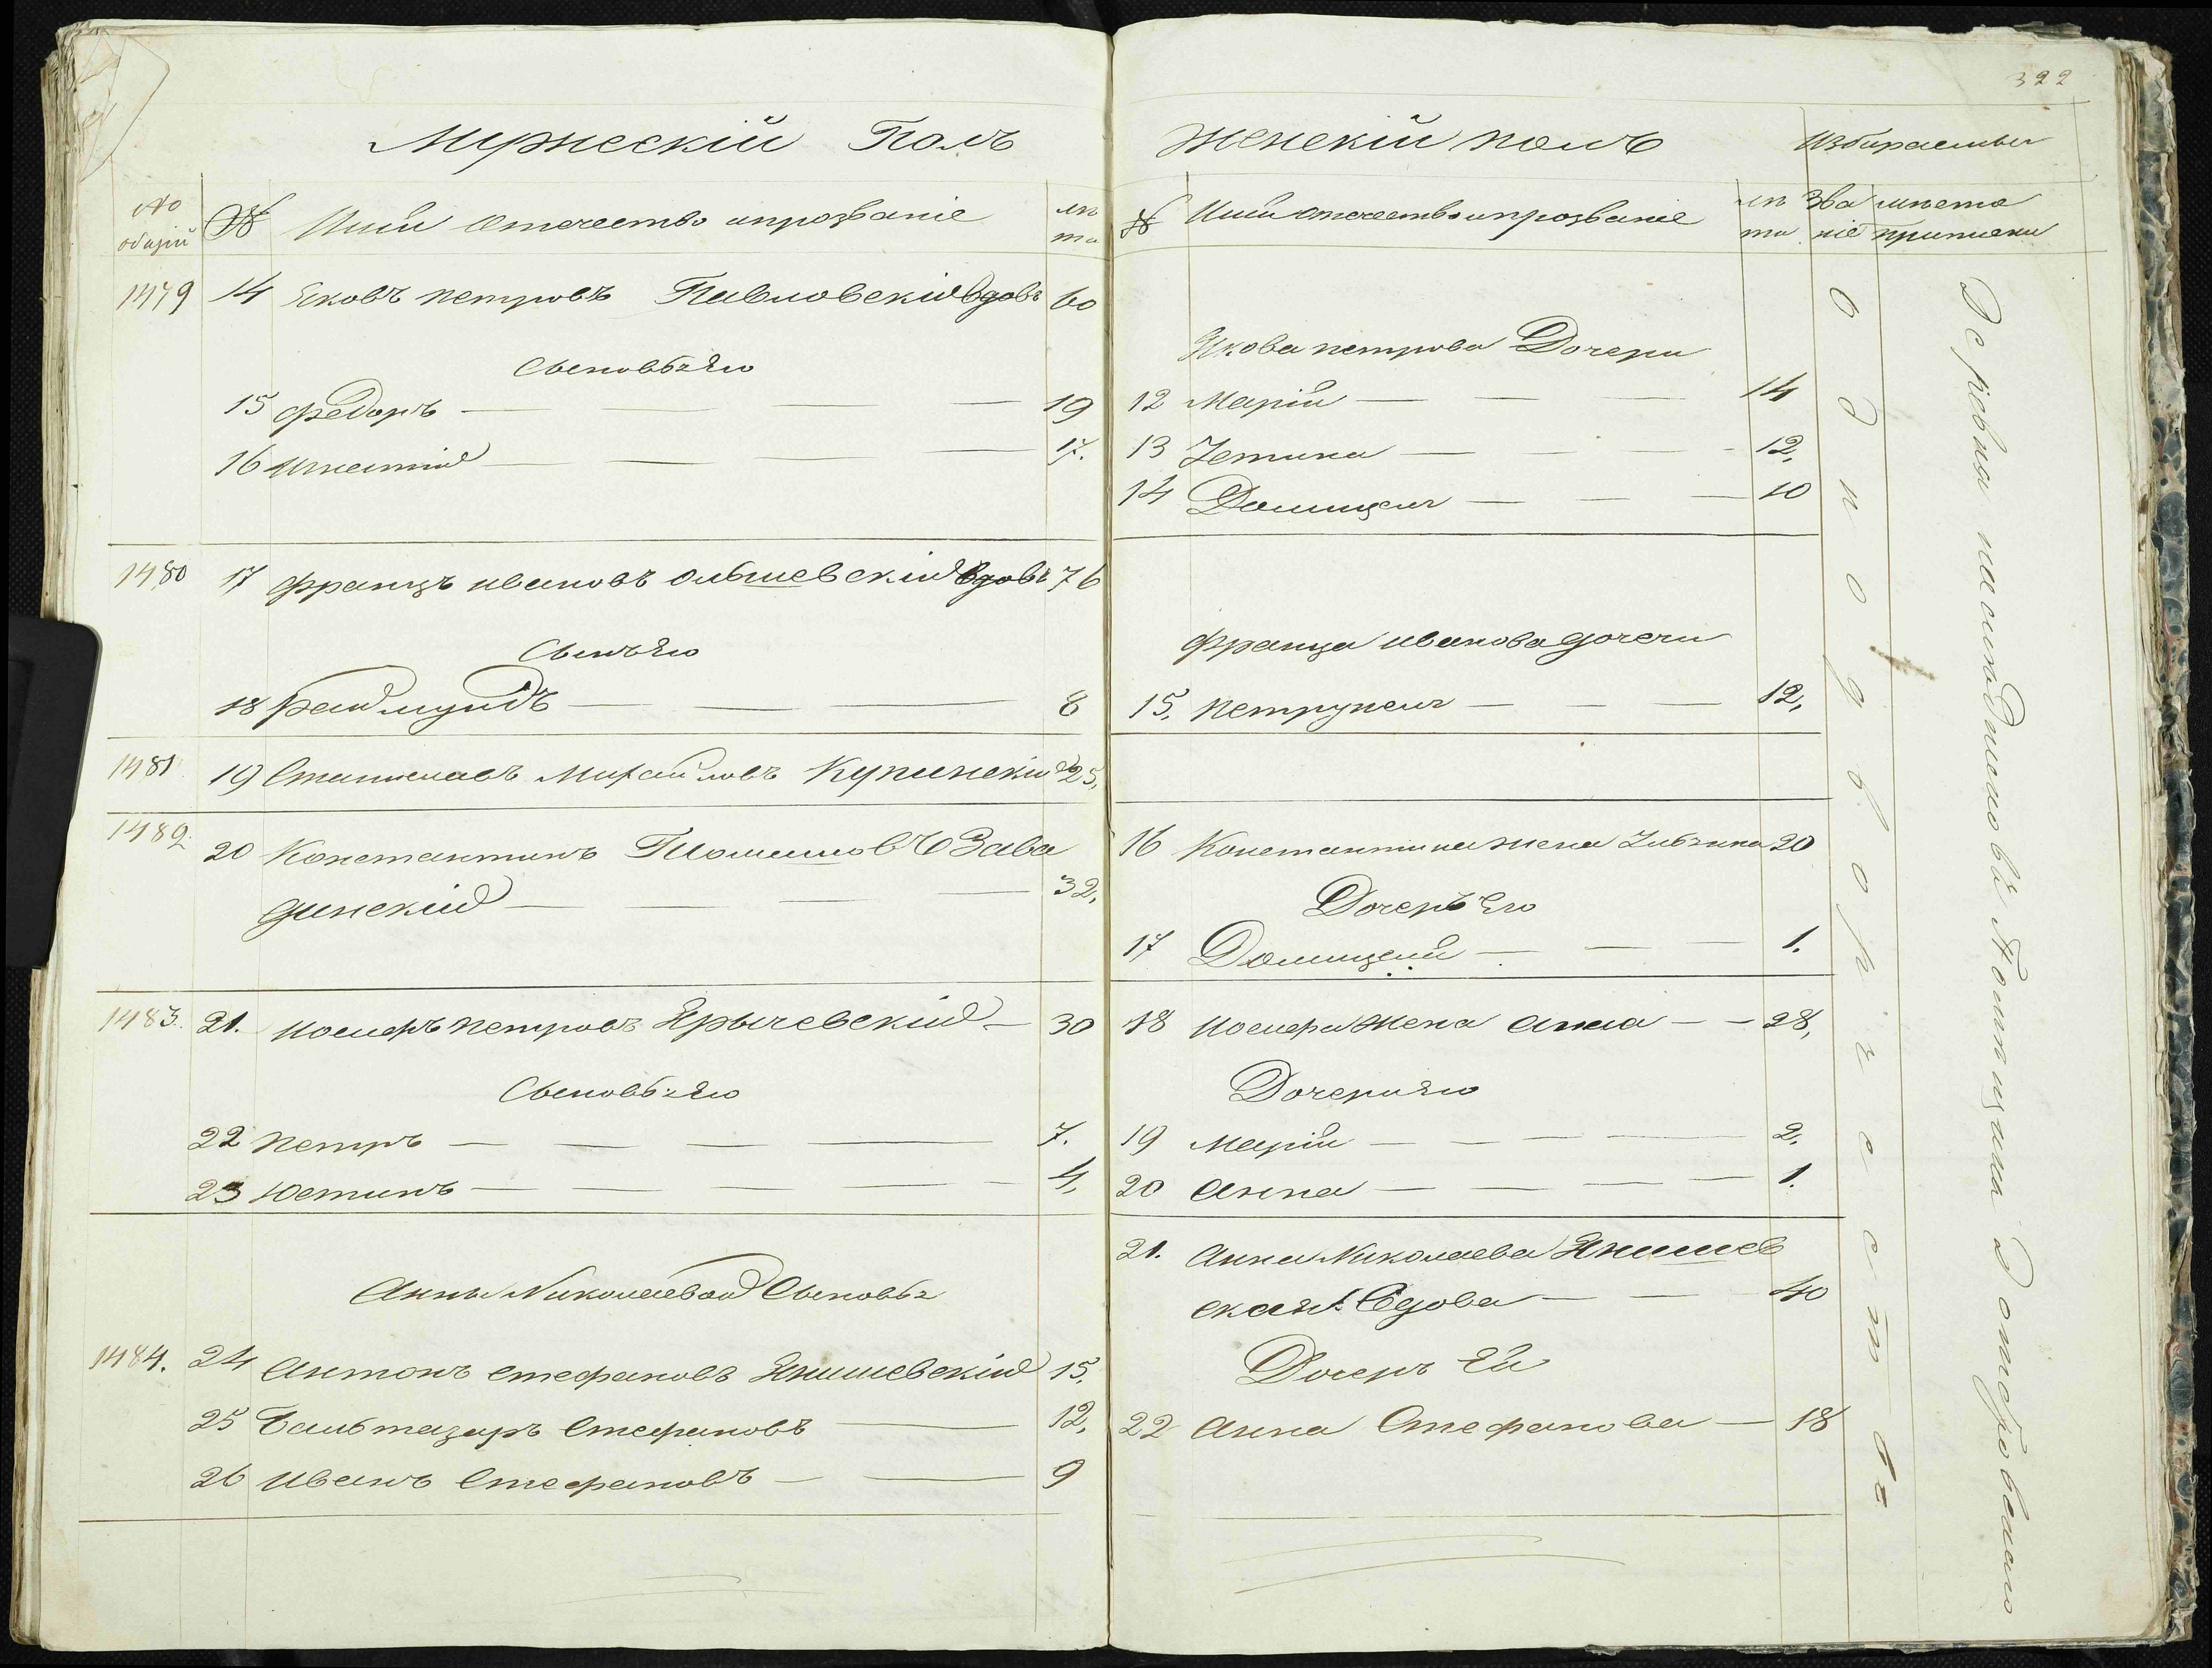 322
Мужескій Полъ
№ общій
№
Имя Отечество ипрозваніе
лѣта
1479 14 Яковъ петровъ Павловскій вдовъ 60
Сыновья Его
15 федоръ 19
16 Игнатій 17.
1480 17 францъ ивановъ Ольшевскій вдовъ 76
Сынъ Его
18 Раймундъ 8
1481 19 Станиславъ Михайловъ Купинскій 25,
1482. 20 Константинъ Томашовъ Зава
динскій 32,
1483. 21. иосифъ петровъ Ярычевскій 30
Сыновья Его
22 петръ 7.
23 Юстинъ 4,
Анны Николаевой Сыновья
1484. 24 Антонъ стефановъ Янишевскій 15,
25 Бальтазаръ Стефановъ 12,
26 иванъ Стефановъ 9
Женскій полъ
Избираемыя
№ Имя Отечество ипрозваніе
лѣта
Званіе
мѣста приписки
Якова петрова Дочери
12 Марія 14
13 Устина 12,
14 Домицеля 10
франца иванова дочери
15. петрунеля 12,
16 Константина жена 20
Дочерь Его
17 Домицеля 1.
18 иосифа Жена Анна 28,
Дочери Его
19 Марія 2,
20 Анна 1.
21. Анна Николаева Янишев
ская Вдова 40
Дочерь Ей
22 Анна Стефанова 18
однодворческое